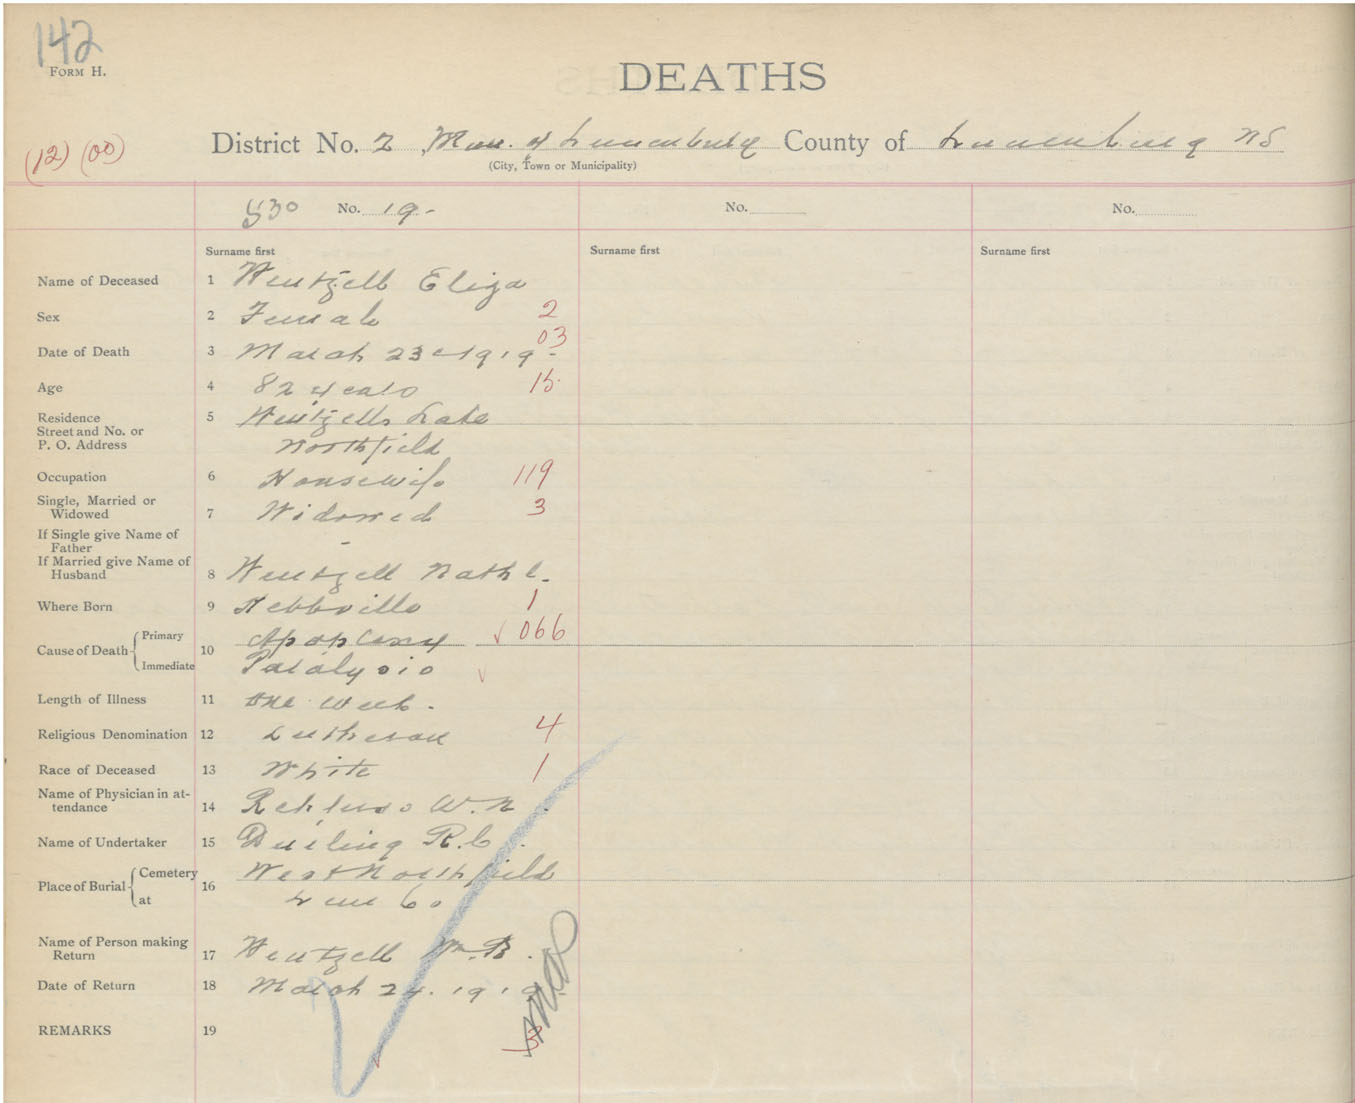 142
FORM H.
DEATHS
(12) (00)
District No. 2, Mun. of Lunenburg County of Lunenburg NS
(City, Town or Municipality)
530 No. 19- No. No.
Surname first Surname first Surname first
Name of Deceased 1 Wentzell Eliza
Sex 2 Female 2
03
Date of Death 3 March 23 - 1919 -
Age 4 82 years 15
Residence 5 Wentzells Lake
Street and No. or
P. O. Address Northfield
Occupation 6 Housewife 119
Single, Married or
Widowed 7 Widowed 3
If Single give Name of
Father -
If Married give Name of
Husband 8 Wentzell Nath l.
Where Born 9 Hebbville 1
Cause of Death Primary 10 Apoplexy √ 066
Immediate Paralysis √
Length of Illness 11 One week.
Religious Denomination 12 Lutheran 4
Race of Deceased 13 White 1
Name of Physician in at-
tendance 14 Rehfuss W. N.
Name of Undertaker 15 R. C.
Place of Burial Cemetery 16 West Northfield
at Lun Co
Name of Person making
Return 17 Wentzell Wm. B.
Date of Return 18 March 24. 1919-
REMARKS 19
3